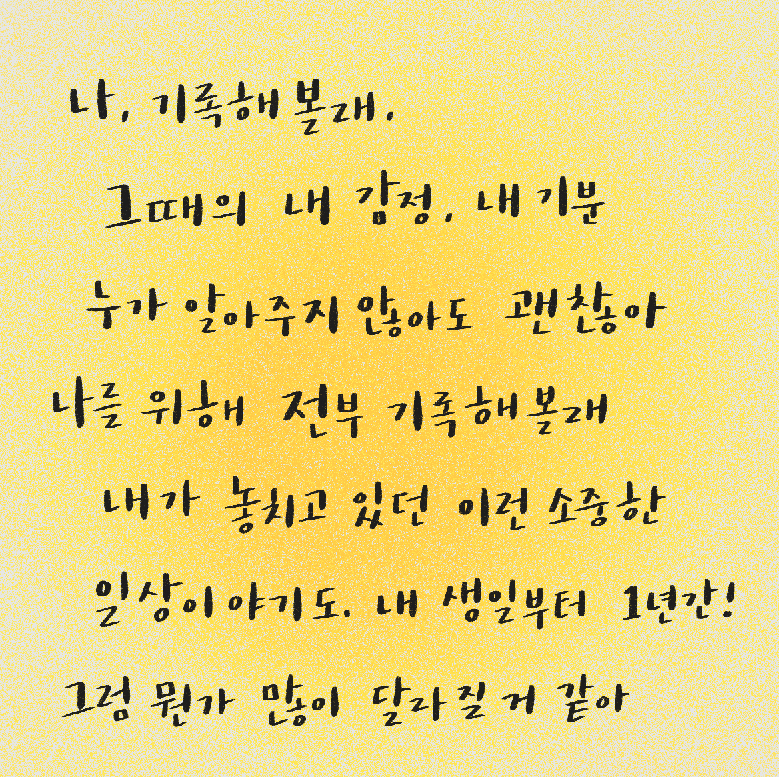 나, 기록해볼래.
그때의 내 감정, 내 기분
누가 알아주지 않아도 괜찮아
나를 위해 전부 기록해볼래
내가 놓치고 있던 이런 소중한
일상이야기도. 내 생일부터 1년간!
그럼 뭔가 많이 달라질 거 같아